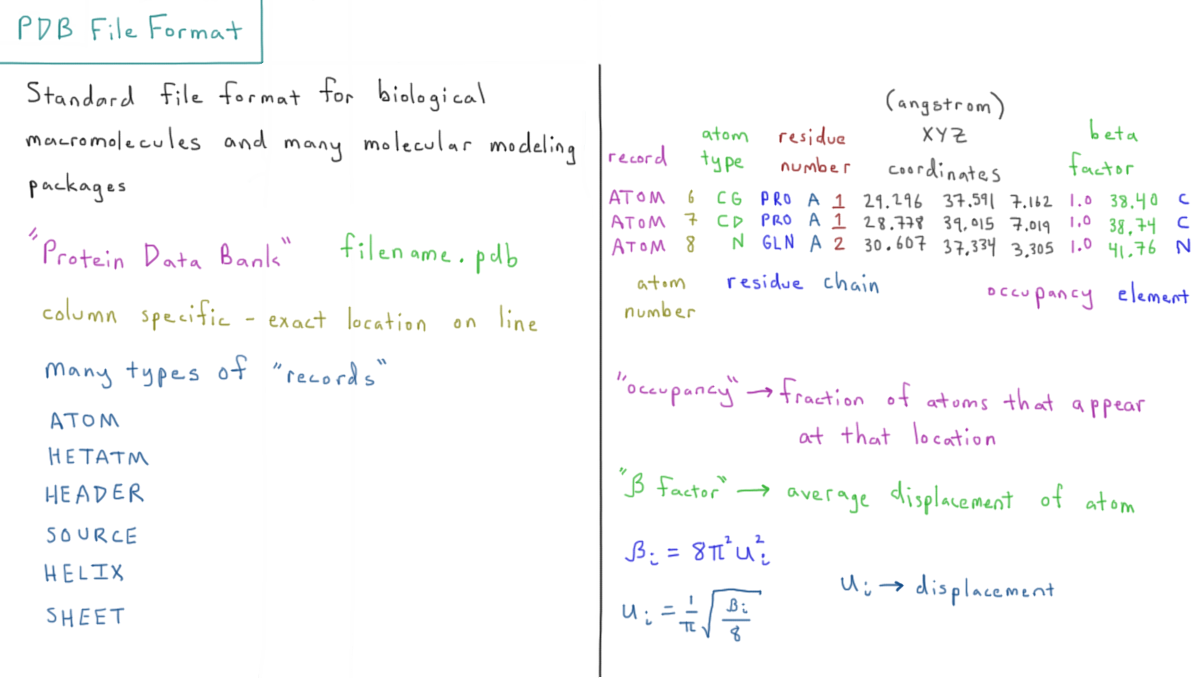 PDB File Format
Standard file format for biological
macromolecules and many molecular modeling
packages
"Protein Data Bank" filename.pdb
column specific - exact location on line
many types of "records"
ATOM
HETATM
HEADER
SOURCE
HELIX
SHEET
(angstrom)
atom residue XYZ beta
record type number coordinates factor
ATOM 6 CG PRO A 1 29.296 37.591 7.162 1.0 38.40 C
ATOM 7 CD PRO A 1 28.778 39.015 7.019 1.0 38.74 C
ATOM 8 N GLN A 2 30.607 37.334 3.305 1.0 41.76 N
atom residue chain
number occupancy element
"occupancy" → fraction of atoms that appear
at that location
"β factor" → average displacement of atom
βi = 8π²ui²
ui → displacement
ui = 1/π √(βi/8)